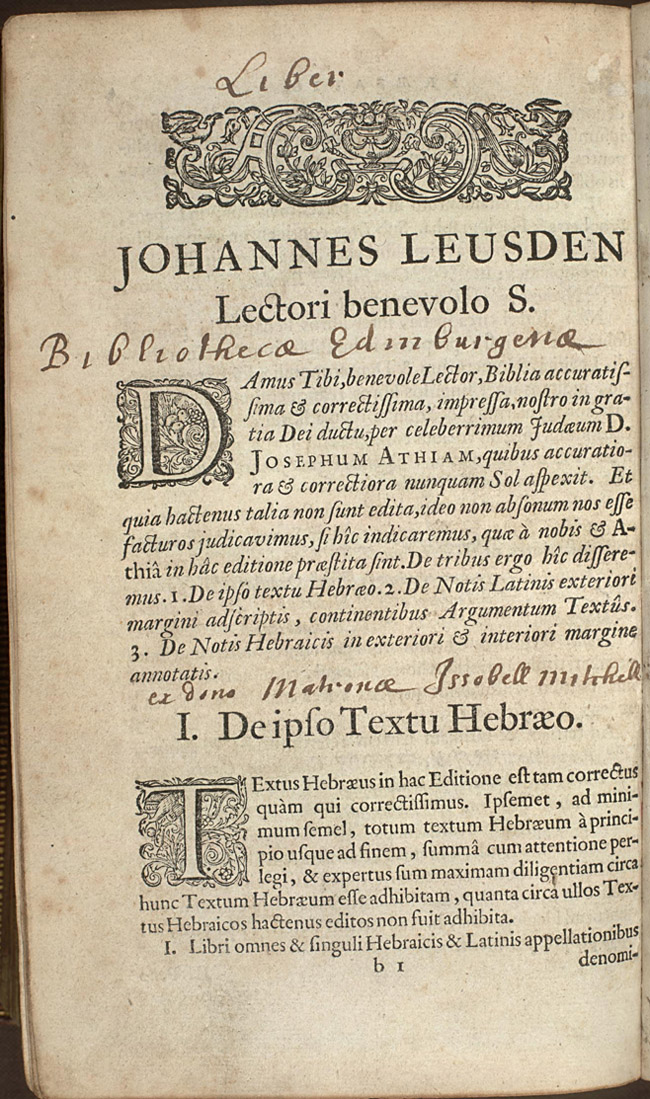 Liber
JOHANNES LEUSDEN
Lectori benevolo S.
Bibliothecæ Edinburgenæ
DAmus Tibi, benevole Lector, Biblia accuratiſ-
ſima & correctiſſima, impreſſa, noſtro in gra-
tia Dei ductu, per celeberrimum Judæum D.
JOSEPHUM ATHIAM, quibus accuratio-
ra & correctiora nunquam Sol aſpexit. Et
quia hactenus talia non ſunt edita, ideo non abſonum nos eſſe
facturos judicavimus, ſi hîc indicaremus, quæ à nobis & A-
thiâ in hâc editione præſtita ſint. De tribus ergo hîc diſſere-
mus. 1. De ipſo textu Hebræo. 2. De Notis Latinis exteriori
margini adſcriptis, continentibus Argumentum Textûs.
3. De Notis Hebraicis in exteriori & interiori margine
annotatis.
ex dono Matronæ Issobell Mitchell
I. De ipſo Textu Hebræo.
TExtus Hebræus in hac Editione eſt tam correctus
quàm qui correctiſſimus. Ipſemet, ad mini-
mum ſemel, totum textum Hebræum à princi-
pio uſque ad finem, ſummâ cum attentione per-
legi, & expertus ſum maximam diligentiam circa
hunc Textum Hebræum eſſe adhibitam, quanta circa ullos Tex-
tus Hebraicos hactenus editos non fuit adhibita.
I. Libri omnes & ſinguli Hebraicis & Latinis appellationibus
b 1
denomi-